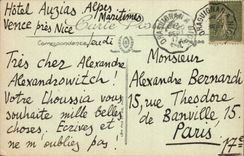 Hotel Auzias Alpes
Vence près Nice Maritimes
Correspondance
Jeudi
Très cher Alexandre
Alexandrowitch!
Votre Lhoussia vous
souhaite mille belles
choses. Ecrivez et
ne m oubliez pas!
Monsieur
Alexandre Bernardi
15, rue Theodore
de Banville 15.
Paris
17e